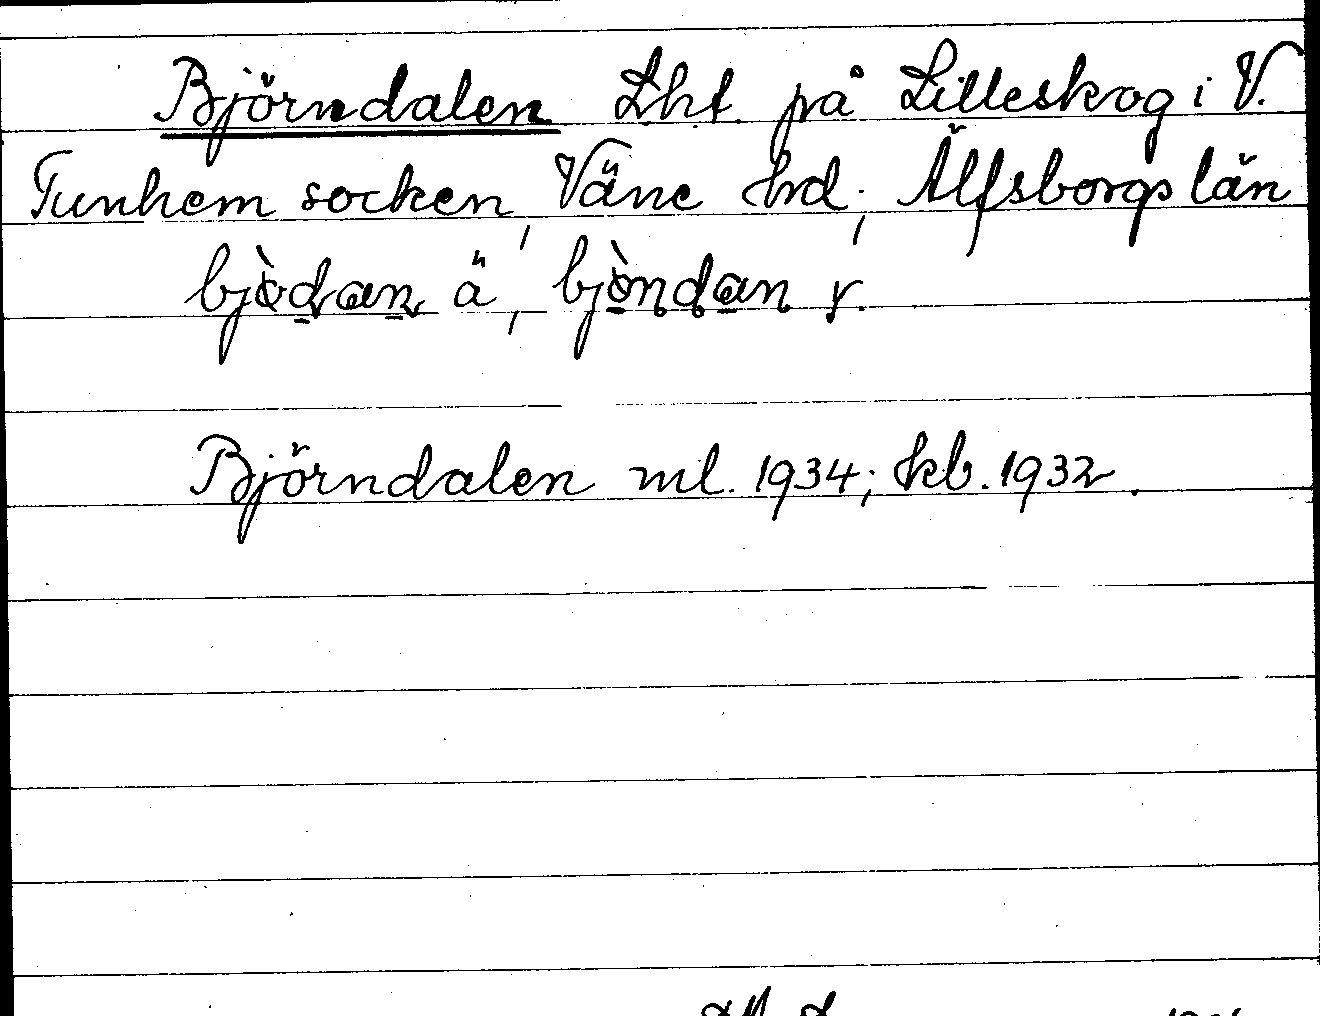 Björndalen Lht. på Lilleskog i V.
Tunhem socken, Väne hd; Älfsborgs län
bjòdan ä, bjòndan y.
Björndalen ml. 1934; kb. 1932.